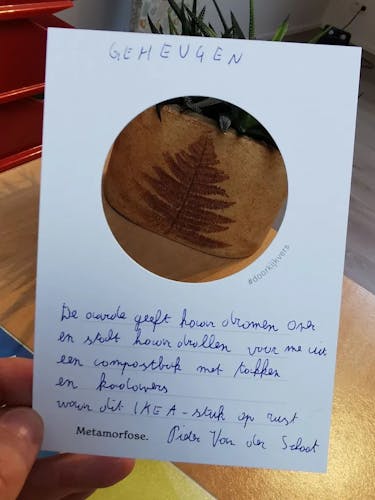 GEHEUGEN
#doorkijkvers
De aarde geeft haar dromen over
en stalt haar drollen voor me uit
een compostbak met takken
en kadavers
waar dit IKEA-stuk op rust
Metamorfose. Pider Van der Schoot